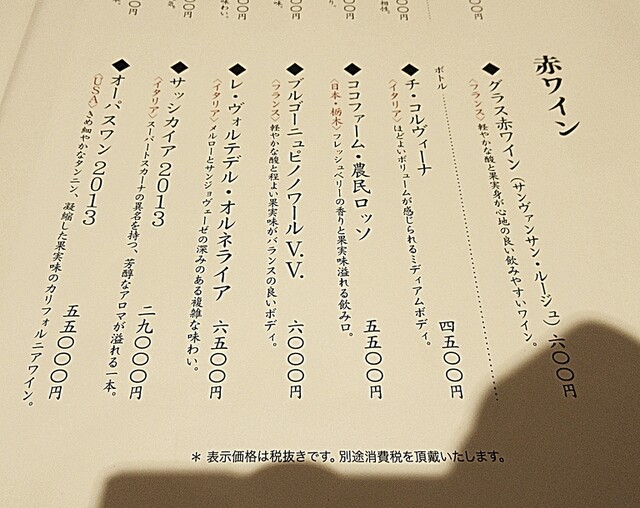 赤ワイン
◆グラス赤ワイン(サンヴァンサン・ルージュ) 六〇〇円
〈フランス〉軽やかな酸と果実身が心地の良い飲みやすいワイン。
ボトル
◆チ・コルヴィーナ 四五〇〇円
〈イタリア〉ほどよいボリュームが感じられるミディアムボディ。
◆ココファーム・農民ロッソ 五五〇〇円
〈日本・栃木〉フレッシュベリーの香りと果実味溢れる飲み口。
◆ブルゴーニュピノノワールV.V. 六〇〇〇円
〈フランス〉軽やかな酸と程よい果実味がバランスの良いボディ。
◆レ・ヴォルテデル・オルネライア 六五〇〇円
〈イタリア〉メルローとサンジョヴェーゼの深みのある複雑な味わい。
◆サッシカイア2013 二九〇〇〇円
〈イタリア〉スーパートスカーナの異名を持つ、芳醇なアロマが溢れる一本。
◆オーパスワン2013 五五〇〇〇円
〈USA〉きめ細やかなタンニン、凝縮した果実味のカリフォルニアワイン。
＊ 表示価格は税抜きです。別途消費税を頂戴いたします。